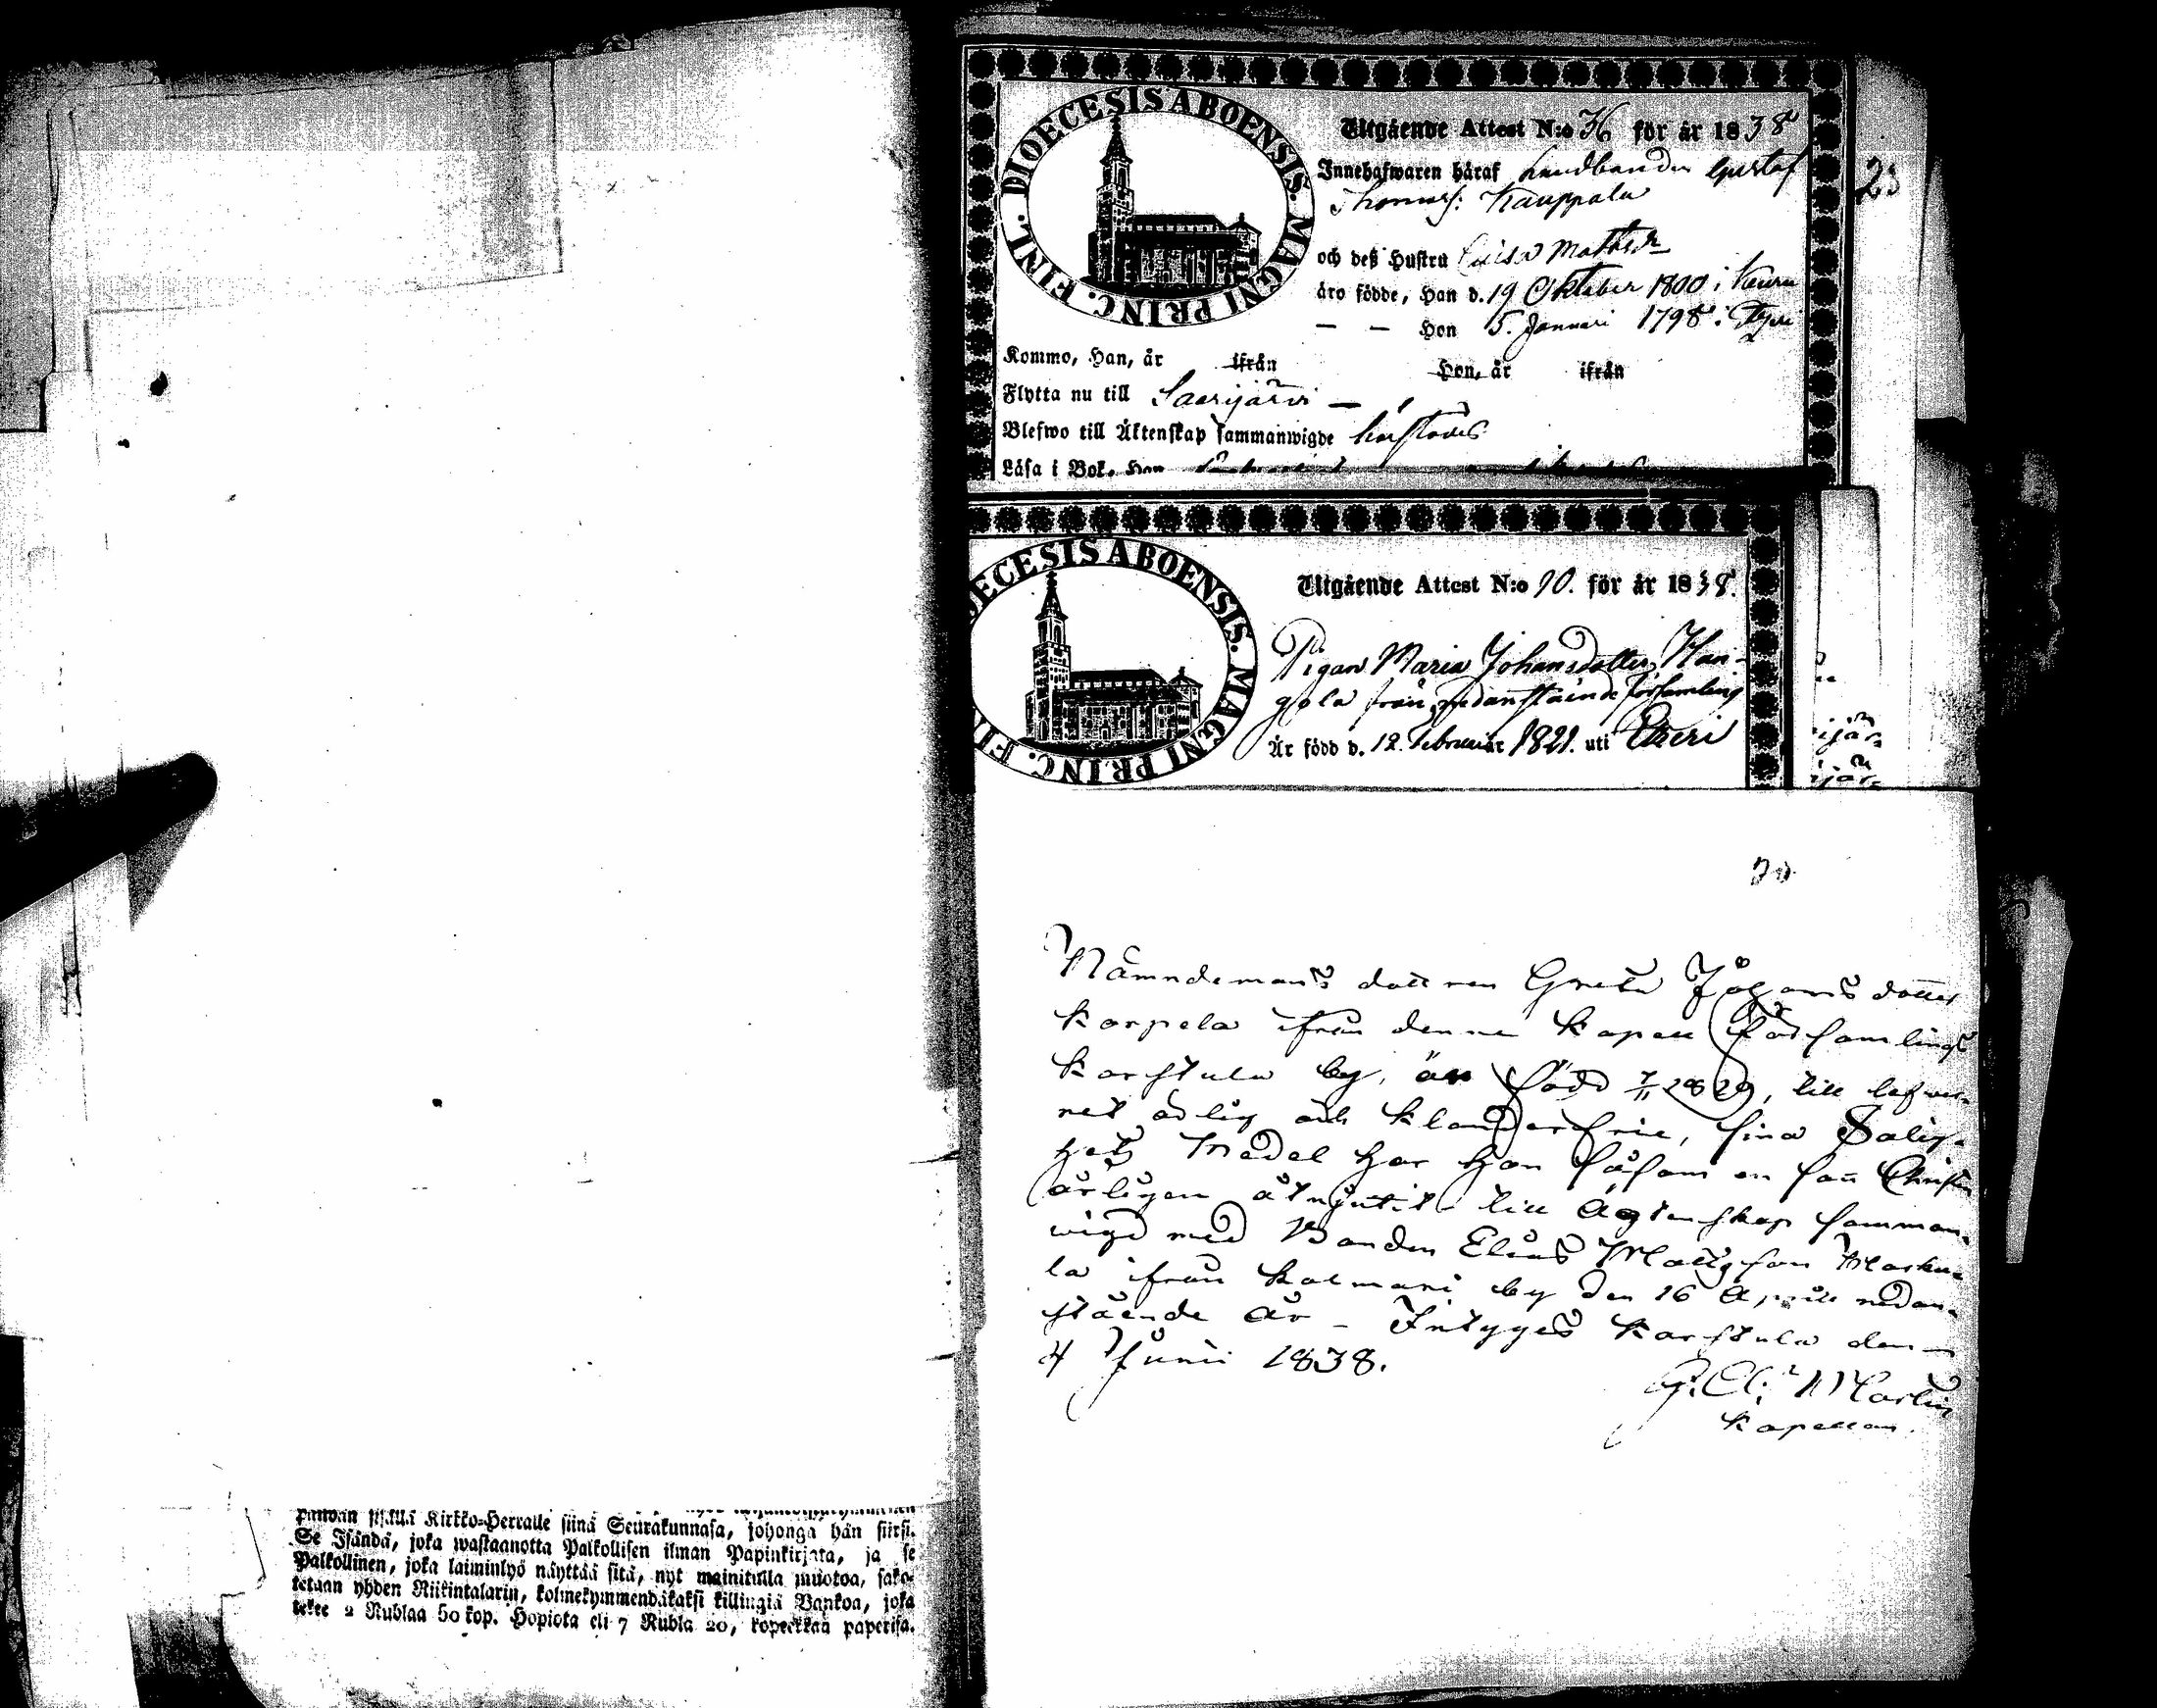 DIOECESIS ABOENSIS. MAGNI PRINC. FINL.
Utgående Attest N:o 36 för år 1838
Innehafwaren häraf Landbonden Gustaf
Thomas: Kauppala
23
och deß Hustru Caisa Mattsdr
äro födde, Han d. 19 Oktober 1800 i Keuru
— — Hon 5. Januari 1798 i
Kommo, Han, år ifrån Hon, år ifrån
Flytta nu till Saarijärvi —
Blefwo till Äktenskap sammanwigde
Läsa i Bok. Han
ECESIS ABOENSIS. MAGNI PRINC. FI
Utgående Attest N:o 10. för år 1838.
Pigan Maria Johansdotter Han-
gola från nedanstående församling
Är född d. 12. Februari 1821. uti Etseri
ijär
jär
20
Nämndemans dottren Greta Johansdotter
Karpela ifrån denne Kapell församlings
Karstula by, är född 1829, till lefwer-
net ärlig och klanderfrie, sina Salig-
hets Medel har hon såsom en sann Christen
årligen åtnjutit till Ägtenskap samman-
wigd med Bonden Elias Mattsson
la ifrån Kalmari by den 16 April nedan-
stående år — Intygas Karstula den
4 Junii 1838.
Kapellan.
sisällä Kirkko-Herralle siinä Seurakunnasa, johonga hän siirsi.
Se Isändä, joka wastaanotta Palkollisen ilman Papinkirjata, ja se
Palkollinen, joka laiminlyö näyttää sitä, nyt mainitulla muotoa, sako-
tetaan yhden Riikintalarin, kolmekymmendäkaksi killingiä Bankoa, joka
tekee 2 Rublaa 50 kop. Hopiota eli 7 Rubla 20, kopeekkaa paperisa.